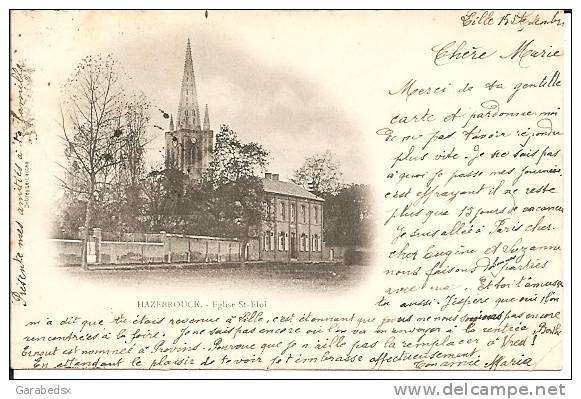 Lille 15 Septembre
Chère Marie
Merci de ta gentille
carte et pardonne-moi
de ne pas t'avoir répondu
plus vite. Je ne sais pas
à quoi je passe mes journées
c'est effrayant il ne reste
plus que 15 jours de vacances
Je suis allée à Paris cher-
cher Eugène et Suzanne
nous faisons de bonnes parties
avec eux. Et toi t'amuses
tu aussi? J'espère que oui l'on
m'a dit que tu étais revenue à Lille, c'est étonnant que nous ne nous soyons pas encore
rencontrées à la foire. Je ne sais pas encore où l'on va m'envoyer à la rentrée, Berthe
Ernout est nommée à Provins. Pourvu que je n'aille pas la remplacer à Vred!
En attendant le plaisir de te voir je t'embrasse affectueusement
Ton amie Maria
Présente mes amitiés à ta famille
HAZEBROUCK. - Eglise St-Eloi
Garabedsx
www.delcampe.net